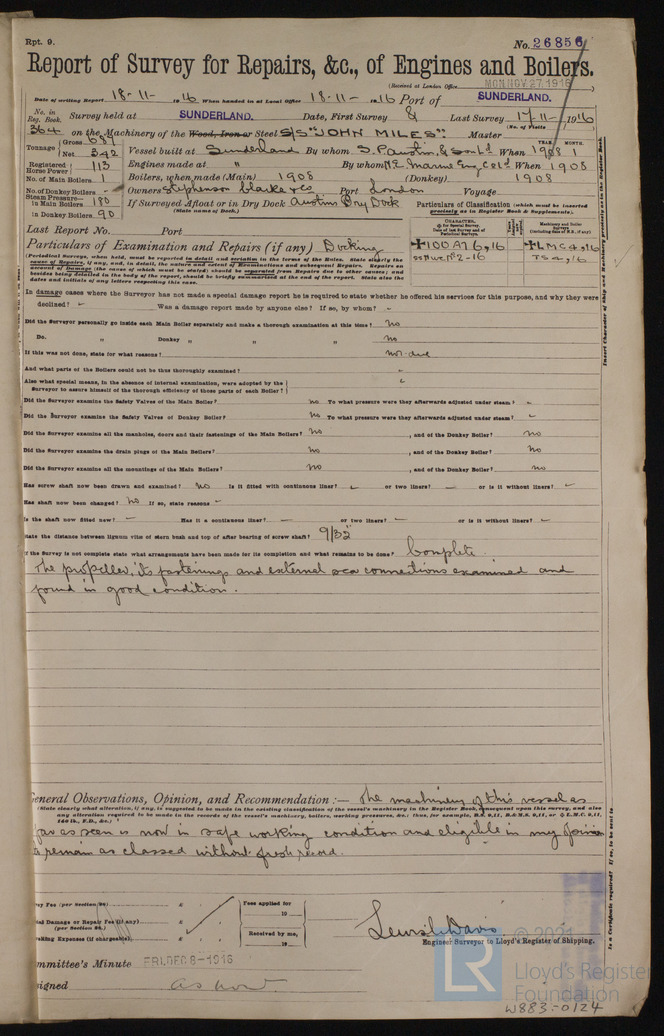 Rpt. 9.
No. 26856
Report of Survey for Repairs, &c., of Engines and Boilers.
(Received at London Office MON. NOV. 27. 1916
Date of writing Report 18-11- 1916 When handed in at Local Office 18-11-1916 Port of SUNDERLAND.
No. in Reg. Book. Survey held at SUNDERLAND. Date, First Survey & Last Survey 17-11-1916
(No. of Visits
364 on the Machinery of the Wood, Iron or Steel S/S "JOHN MILES" Master
Tonnage Gross 687
Net 342
Vessel built at Sunderland By whom S. P. Austin & Son Ld When 1908 1
YEAR. MONTH.
Registered Horse Power 113 Engines made at " By whom N.E. Marine Eng Co Ld When 1908
No. of Main Boilers 1 Boilers, when made (Main) 1908 (Donkey) 1908
No. of Donkey Boilers - Owners Stephenson Clarke & Co Port London Voyage
Steam Pressure in Main Boilers 180 If Surveyed Afloat or in Dry Dock Austins Dry Dock
(State name of Dock.)
in Donkey Boilers 90
Particulars of Classification (which must be inserted precisely as in Register Book & Supplements).
Last Report No. Port
Particulars of Examination and Repairs (if any) Docking
+100A1 6,16
+LMC 4,16
TS 4,16
(Periodical Surveys, when held, must be reported in detail and seriatim in the terms of the Rules. State clearly the cause of Repairs, if any, and, in detail, the nature and extent of Examinations and subsequent Repairs. Repairs on account of Damage (the cause of which must be stated) should be separated from Repairs due to other causes; and besides being detailed in the body of the report, should be briefly summarised at the end of the report. State also the dates and initials of any letters respecting this case.
In damage cases where the Surveyor has not made a special damage report he is required to state whether he offered his services for this purpose, and why they were
declined? - Was a damage report made by anyone else? If so, by whom? -
Did the Surveyor personally go inside each Main Boiler separately and make a thorough examination at this time? No
Do. " Donkey " " " No
If this was not done, state for what reasons? Not due
And what parts of the Boilers could not be thus thoroughly examined? "
Also what special means, in the absence of internal examination, were adopted by the Surveyor to assure himself of the thorough efficiency of those parts of each Boiler?
Did the Surveyor examine the Safety Valves of the Main Boiler? No To what pressure were they afterwards adjusted under steam? -
Did the Surveyor examine the Safety Valves of Donkey Boiler? No To what pressure were they afterwards adjusted under steam? -
Did the Surveyor examine all the manholes, doors and their fastenings of the Main Boilers? No , and of the Donkey Boiler? No
Did the Surveyor examine the drain plugs of the Main Boilers? No , and of the Donkey Boiler? No
Did the Surveyor examine all the mountings of the Main Boilers? No , and of the Donkey Boiler? No
Has screw shaft now been drawn and examined? No Is it fitted with continuous liner? - or two liners? - or is it without liners? -
Has shaft now been changed? No If so, state reasons -
Is the shaft now fitted new? - Has it a continuous liner? - or two liners? - or is it without liners? -
State the distance between lignum vitæ of stern bush and top of after bearing of screw shaft? 9/32"
If the Survey is not complete state what arrangements have been made for its completion and what remains to be done? Complete.
The propeller, its fastenings and external sea connections examined and
found in good condition.
General Observations, Opinion, and Recommendation:— The machinery of this vessel as
(State clearly what alteration, if any, is suggested to be made in the existing classification of the vessel's machinery in the Register Book, consequent upon this survey, and also any alteration required to be made in the records of the vessel's machinery, boilers, working pressures, &c.;
far as seen is now in safe working condition and eligible in my opinion
to remain as classed without fresh record.
Fees applied for
19
Received by me,
19
Lewis Davis
Engineer Surveyor to Lloyd's Register of Shipping.
Committee's Minute FRI. DEC 8-1916
Assigned as now
Insert Character of Ship and Machinery precisely as in the Register Book.
Is a Certificate required? If so, to be sent to
© 2021
LR
Lloyd's Register
Foundation
W883-0124